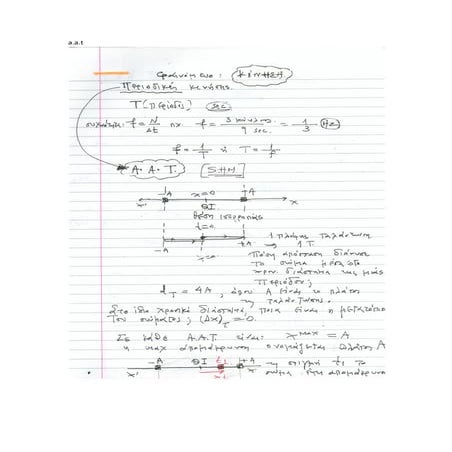 a.a.t
Φαινόμενο: ΚΙΝΗΣΗ
Περιοδική κίνησης
T (περίοδος) sec
συχνότητα: f = N/Δt πχ f = 3 κύκλους / 9 sec. = 1/3 Hz
f = 1/T ή T = 1/f
A. A. T. SHM
-A x=0 +A
x' ΘΙ x
θέση ισορροπίας
t=0
-A x=0 +A
1 πλήρης ταλάντωση
→ 1T.
Πόση απόσταση διάνυσε
το σώμα μέσα στο
χρον. διάστημα της μιας
περιόδου;
d_T = 4A, όπου A είναι το πλάτος
της ταλάντωσης.
Στο ίδιο χρονικό διάστημα, ποια είναι η μετατόπιση
του σώματος; (Δx)_T = 0.
Σε κάθε A.A.T. είναι: x^max = A
η max απομάκρυνση ονομάζεται πλάτος A
-A ΘΙ t1 +A τη στιγμή t1 το
x' x1 x σώμα έχει απομάκρυνση